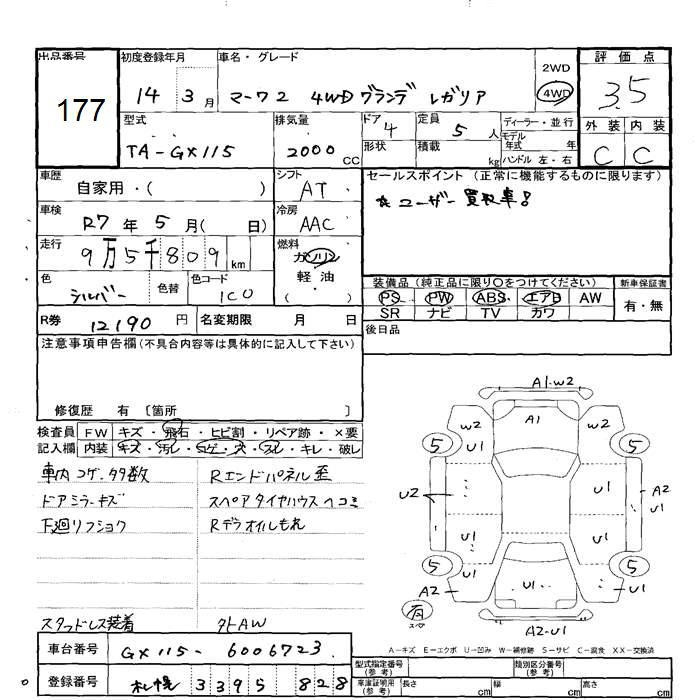 出品番号 初度登録年月 車名・グレード 2WD 評価点
177 14 3月 マーク2 4WD グランデ レガリア 4WD 3.5
型式 排気量 ドア 4 定員 5人 ディーラー・並行 外装 内装
TA-GX115 2000 CC 形状 積載 kg モデル年式 年 C C
ハンドル 左・右
車歴 自家用・( ) シフト AT セールスポイント(正常に機能するものに限ります)
車検 R7年 5月( 日) 冷房 AAC ☆ユーザー買取車!
走行 9万5千809 km 燃料 ガソリン
軽油
( )
色 シルバー 色替 色コード 1C0
装備品(純正品に限り○をつけてください) 新車保証書
PS PW ABS エアB AW 有・無
SR ナビ TV カワ
R券 12190 円 名変期限 月 日 後日品
注意事項申告欄(不具合内容等は具体的に記入して下さい)
修復歴 有 〔箇所 〕
検査員 FW キズ・飛石・ヒビ割・リペア跡・×要
記入欄 内装 キズ・汚レ・コゲ・穴・スレ・キレ・破レ
車内コゲ・タタ数 Rエンドパネル歪
ドアミラーキズ スペアタイヤハウスヘコミ
下廻リフショク Rデフオイルもれ
スタッドレス装着 外AW
A1・W2
A1
W2 U1
U1
5 5
U2 U1 A2
U1
U1 U1
5 5
A2 U1 U1
有
スペ
A2-U1
A-キズ E-エクボ U-凹み W-補修跡 S-サビ C-腐食 XX-交換済
車台番号 GX115-6006723 型式指定番号(参考) 類別区分番号(参考)
登録番号 札幌 33 95 828 車庫証明用(参考) 長さ cm 幅 cm 高さ cm